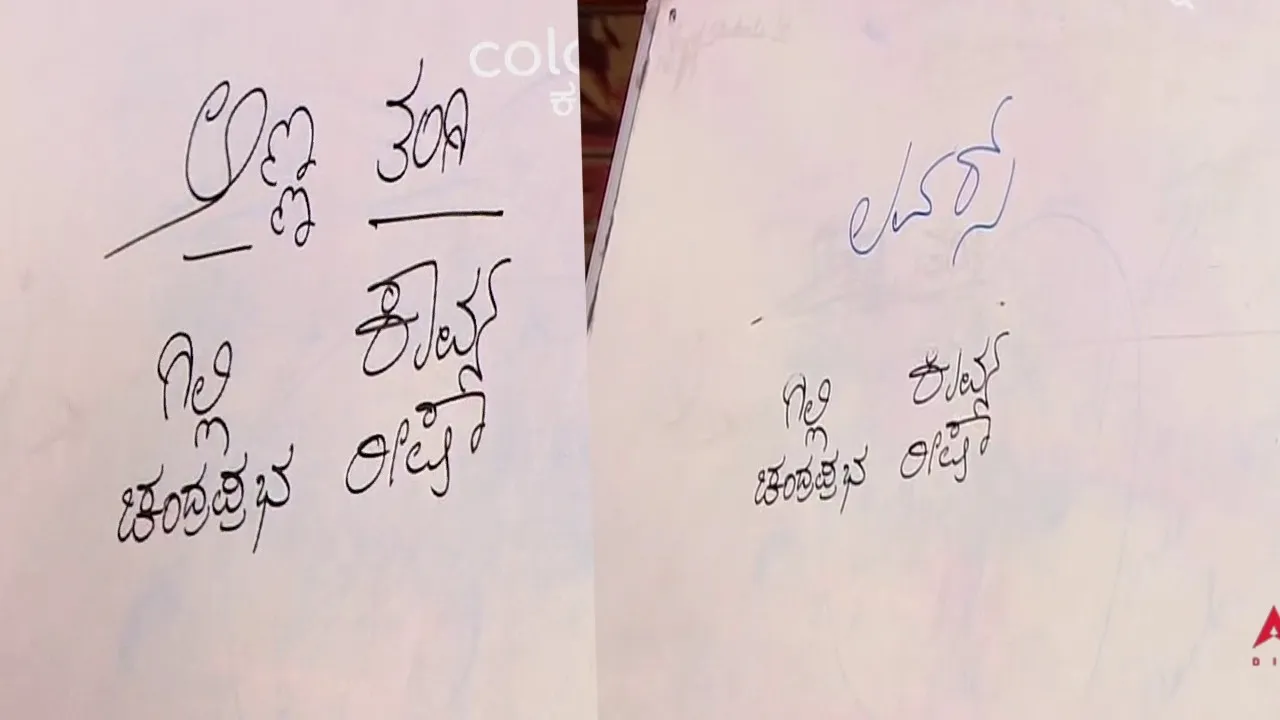 colo
ಕ
ಅಣ್ಣ ತಂಗಿ
ಗಿಲ್ಲಿ ಕಾವ್ಯ
ಚಂದ್ರಪ್ರಭ ರೀಷಾ
ಲವರ್ಸ್
ಗಿಲ್ಲಿ ಕಾವ್ಯ
ಚಂದ್ರಪ್ರಭ ರೀಷಾ
DI